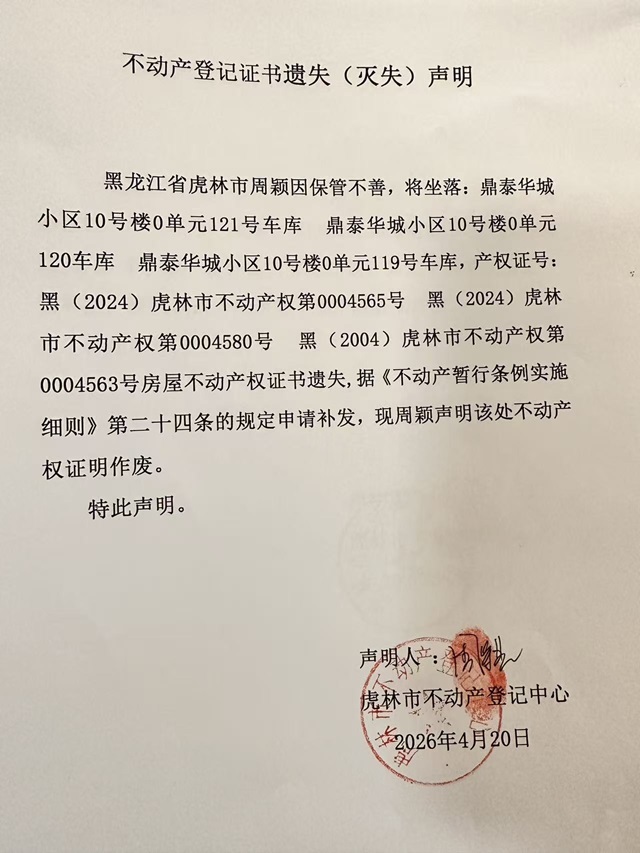 不动产登记证书遗失（灭失）声明
黑龙江省虎林市周颖因保管不善，将坐落：鼎泰华城
小区10号楼0单元121号车库　鼎泰华城小区10号楼0单元
120车库　鼎泰华城小区10号楼0单元119号车库，产权证号：
黑（2024）虎林市不动产权第0004565号　黑（2024）虎林
市不动产权第0004580号　黑（2004）虎林市不动产权第
0004563号房屋不动产权证书遗失,据《不动产暂行条例实施
细则》第二十四条的规定申请补发，现周颖声明该处不动产
权证明作废。
特此声明。
声明人：
虎林市不动产登记中心
2026年4月20日
虎林市不动产登记